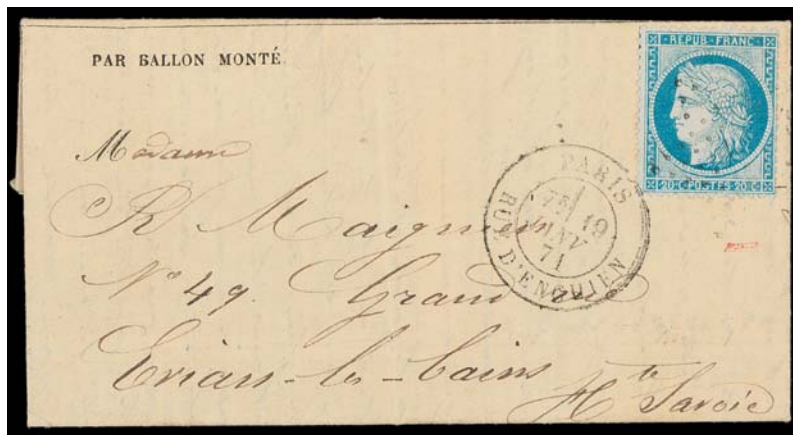 PAR BALLON MONTÉ
REPUB · FRANC
20·C·POSTES·20·C
PARIS
19
JANV
71
RUE D'ENGHIEN
Madame
R Maignien
N° 49. Grand
Evian-les-bains
Hte Savoie